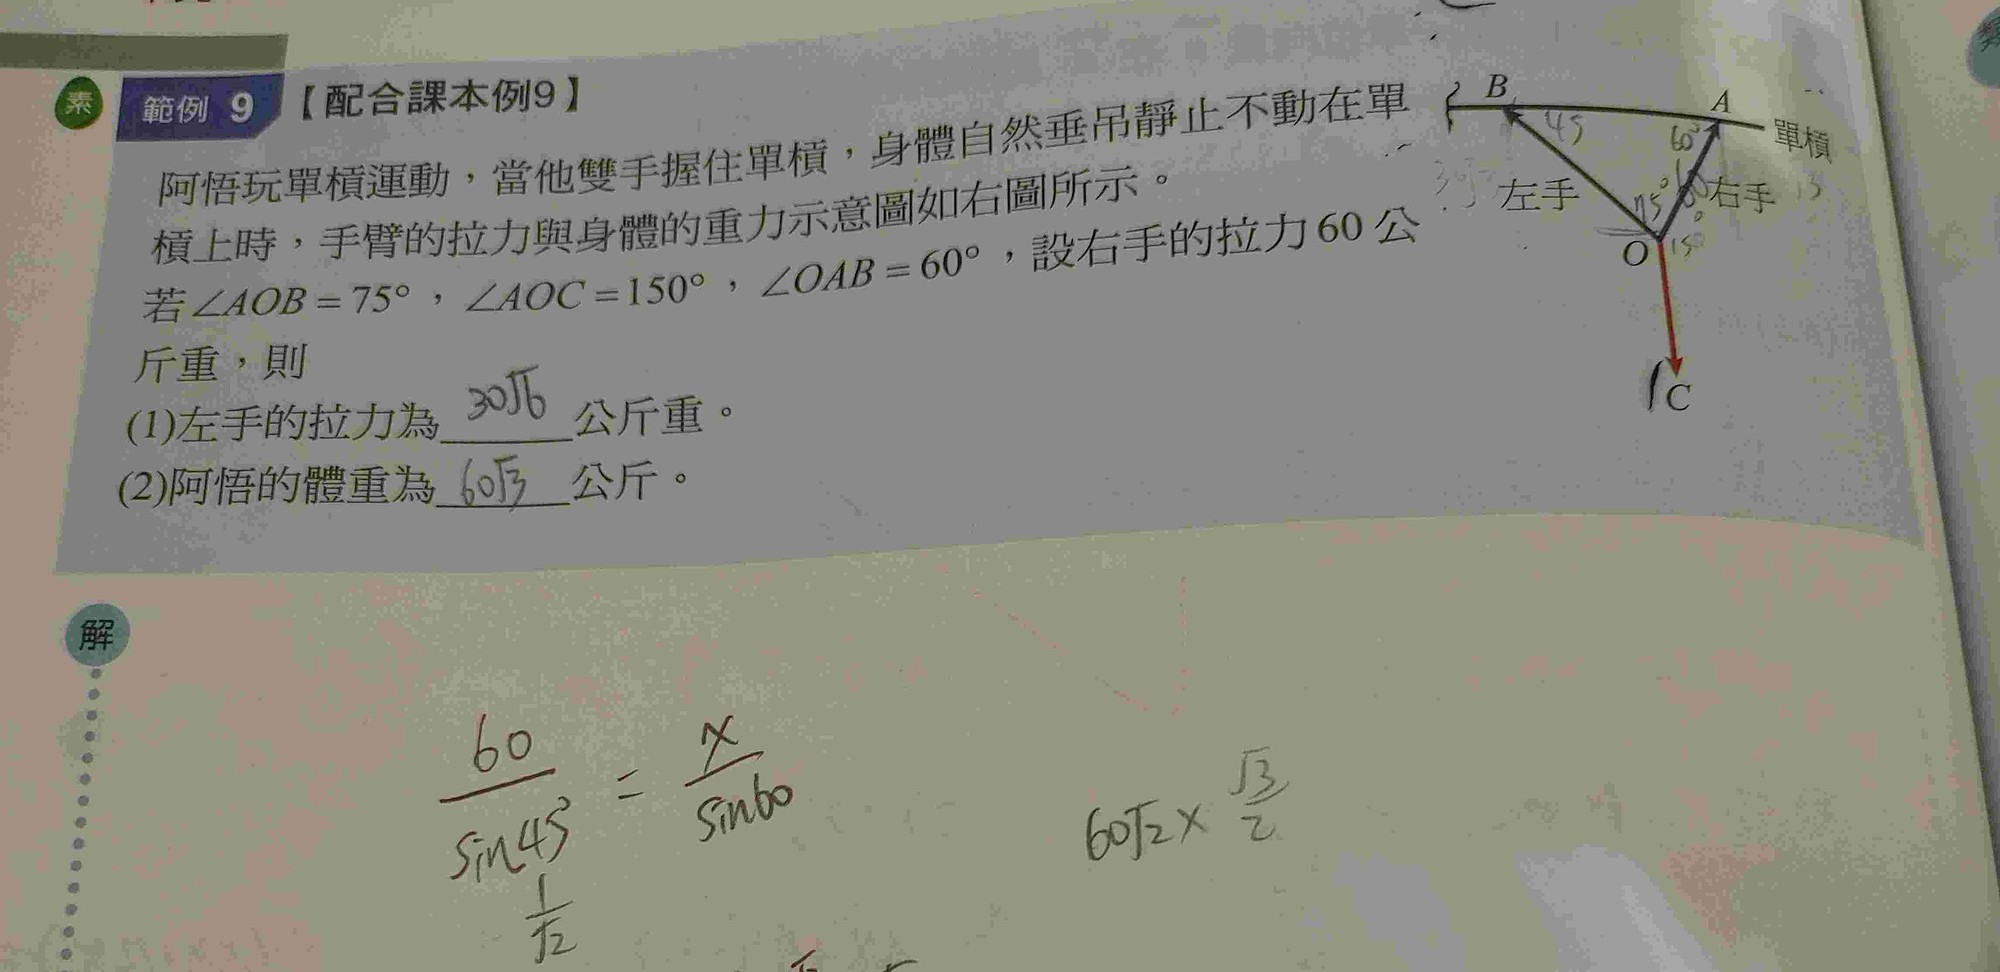 素 範例 9 【配合課本例9】
阿悟玩單槓運動，當他雙手握住單槓，身體自然垂吊靜止不動在單
槓上時，手臂的拉力與身體的重力示意圖如右圖所示。
若∠AOB = 75°，∠AOC = 150°，∠OAB = 60°，設右手的拉力 60 公
斤重，則
(1)左手的拉力為 30√6 公斤重。
(2)阿悟的體重為 60√3 公斤。
B
A
單槓
45
60°
左手
75°
右手
O
150
C
解
60/sin45° = x/sin60
1/√2
60√2 × √3/2